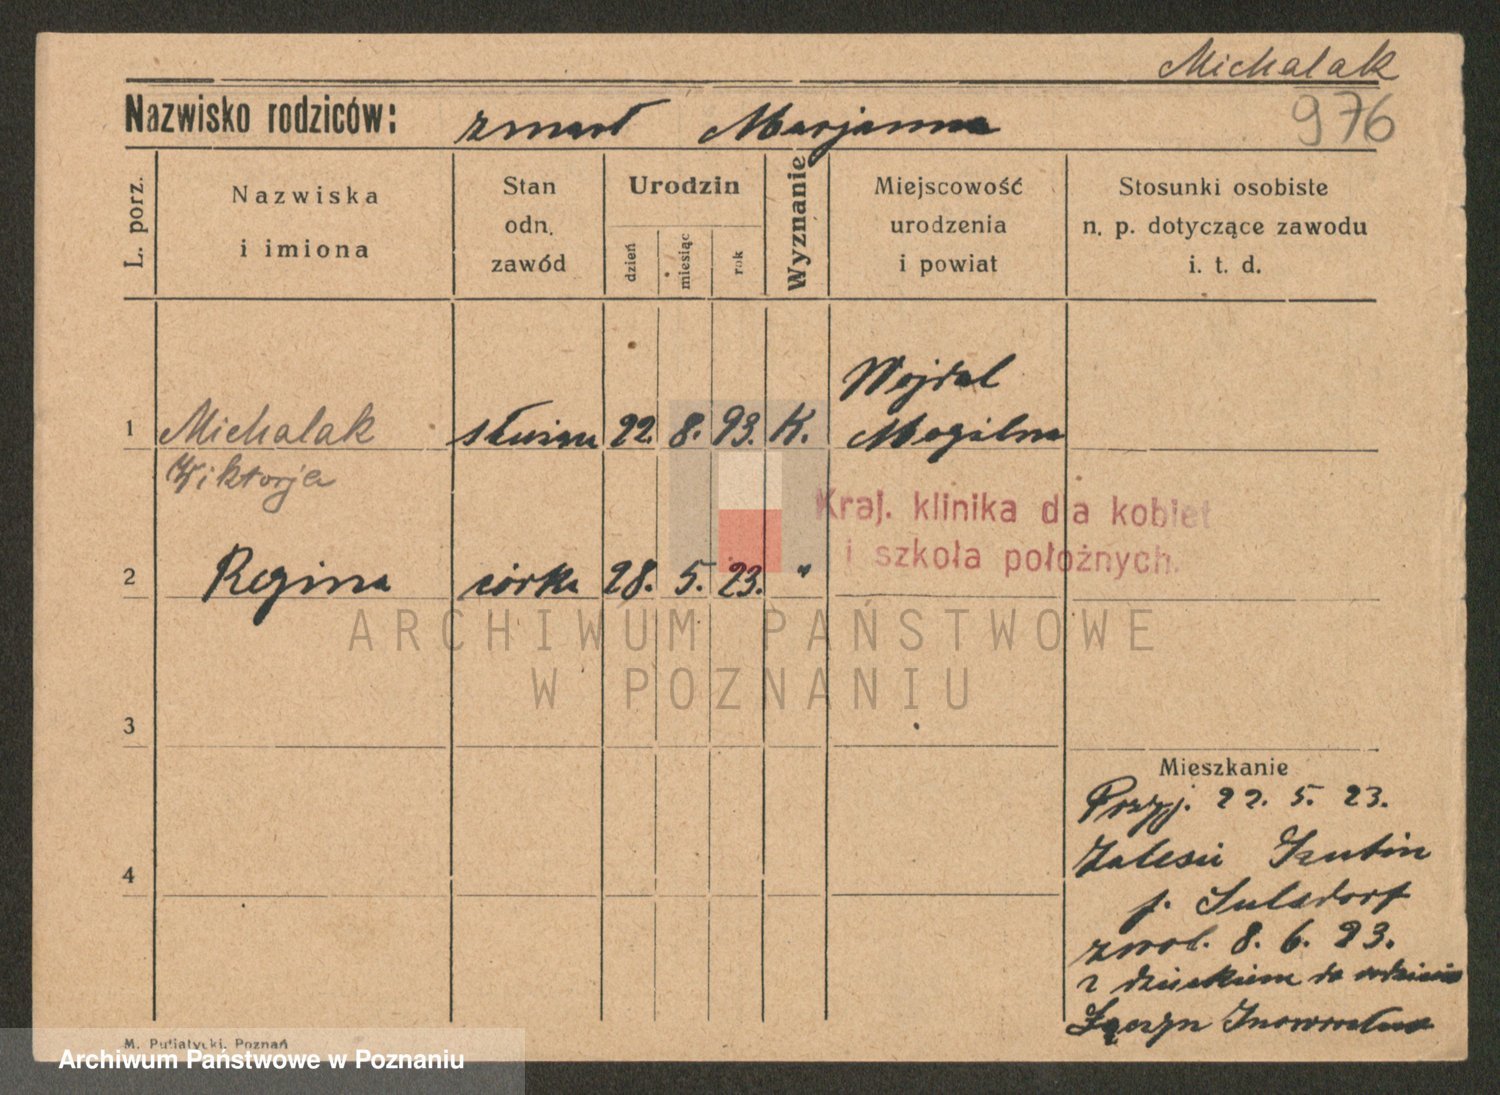 Michalak
976
Nazwisko rodziców: zmarł Marjanna
L. porz.
Nazwiska
i imiona
Stan
odn.
zawód
Urodzin
dzień
miesiąc
rok
Wyznanie
Miejscowość
urodzenia
i powiat
Stosunki osobiste
n. p. dotyczące zawodu
i. t. d.
Wojdal
1 Michalak 22. 8. 93. K. Mogilno
Wiktorja
Kraj. klinika dla kobiet
i szkoła położnych.
2 Regina córka 28. 5. 23. "
ARCHIWUM PAŃSTWOWE
W POZNANIU
3
Mieszkanie
Przyj. 22. 5. 23.
4
p. Sulsdorf
zwol. 8. 6. 23.
z dzieckiem do
M. Putiatycki, Poznań
Archiwum Państwowe w Poznaniu